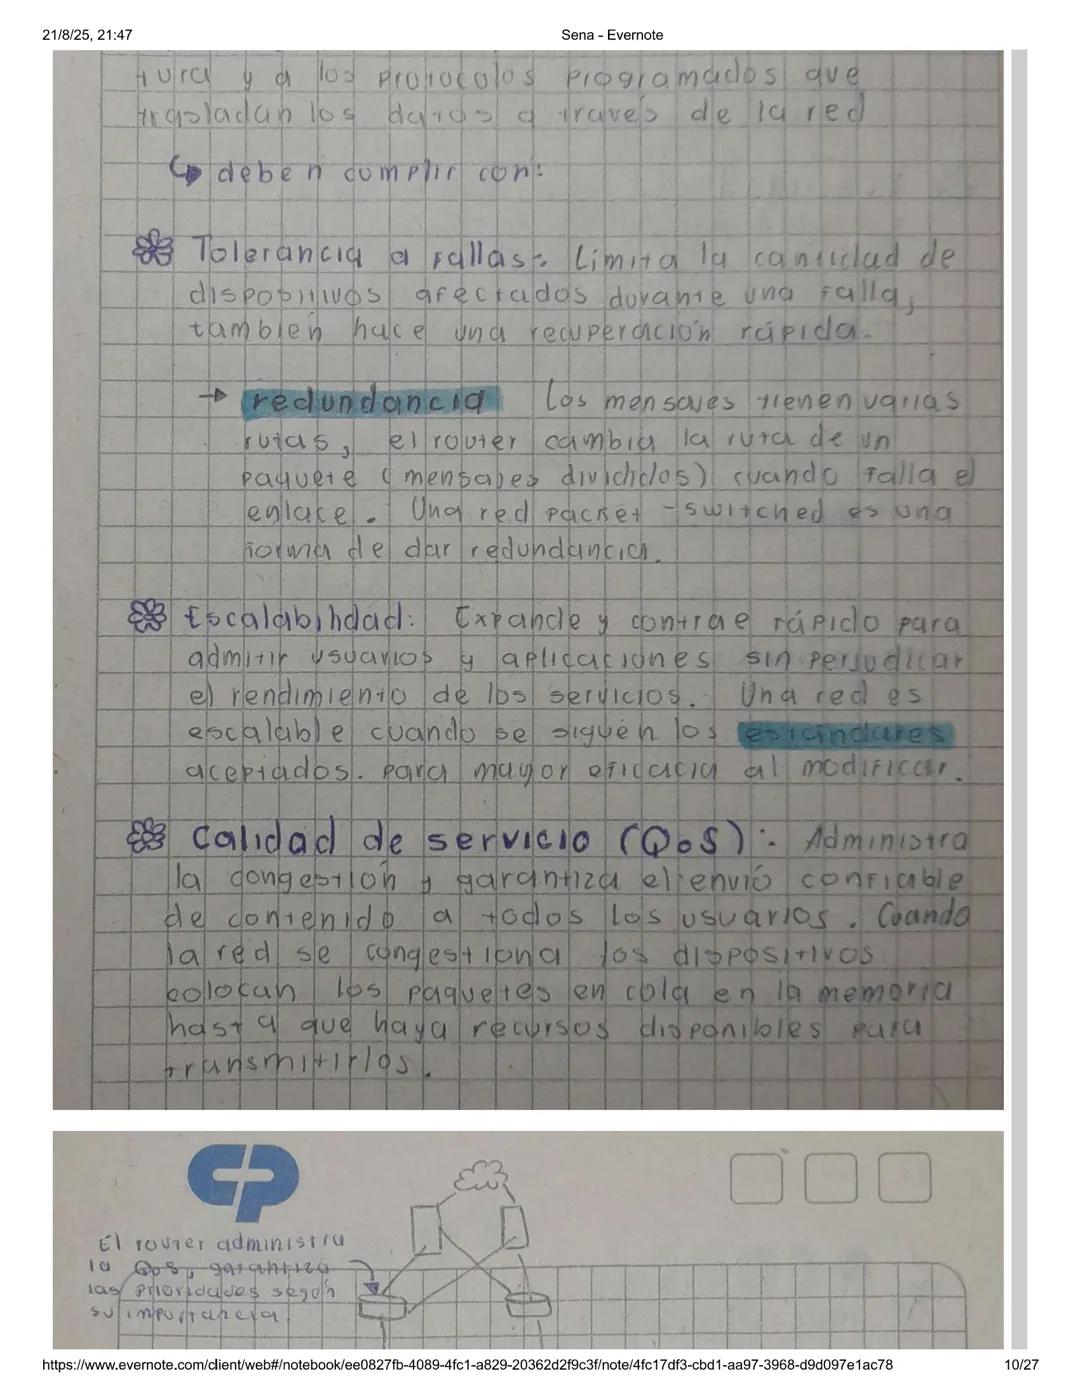 21/8/25, 21:47
Sena - Evernote
tura y a los protocolos programados que
trasladan los datos a través de la red
deben cumplir con:
Tolerancia a fallas: Limita la cantidad de
dispositivos afectados durante una falla,
también hace una recuperación rápida.
→ redundancia Los mensajes tienen varias
rutas, el router cambia la ruta de un
paquete (mensajes divididos) cuando falla el
enlace. Una red packet-switched es una
forma de dar redundancia.
Escalabilidad: Expande y contrae rápido para
admitir usuarios y aplicaciones sin perjudicar
el rendimiento de los servicios. Una red es
escalable cuando se siguen los estándares
aceptados. Para mayor eficacia al modificar.
Calidad de servicio (QoS): Administra
la congestión y garantiza el envió confiable
de contenido a todos los usuarios. Cuando
la red se congestiona los dispositivos
colocan los paquetes en cola en la memoria
hasta que haya recursos disponibles para
transmitirlos.
El router administra
la QoS, garantiza
las prioridades según
su importancia.
https://www.evernote.com/client/web#/notebook/ee0827fb-4089-4fc1-a829-20362d2f9c3f/note/4fc17df3-cbd1-aa97-3968-d9d097e1ac78
10/27